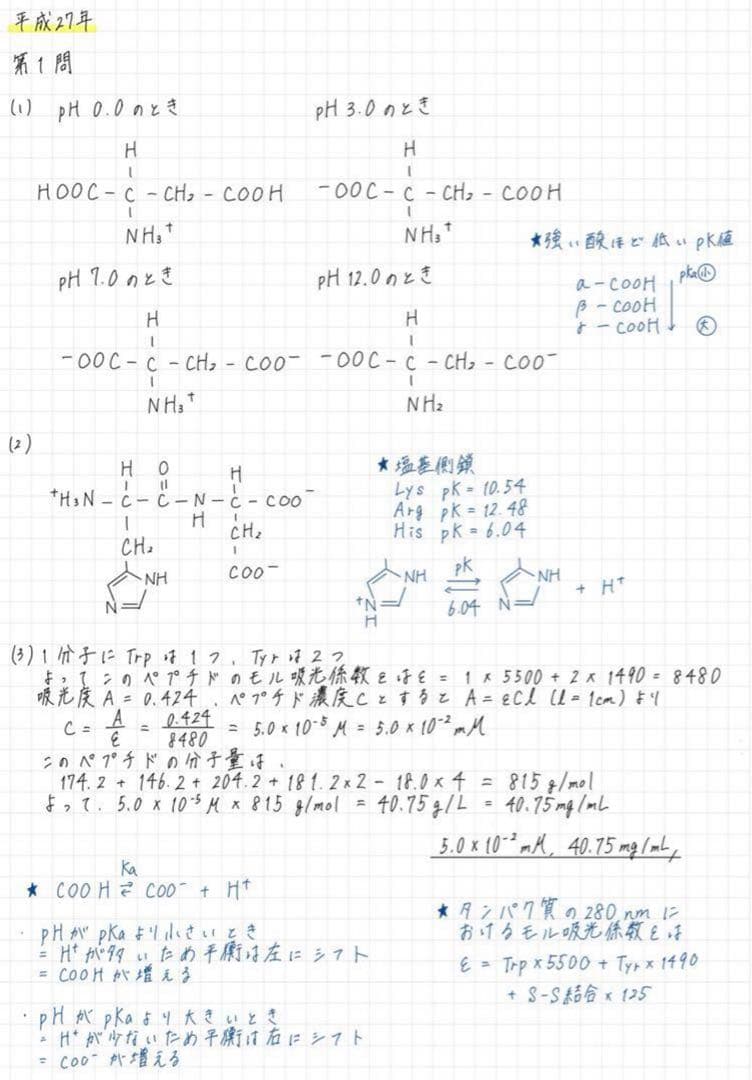 平成27年
第1問
(1) pH 0.0のとき
H
HOOC - C - CH₂ - COOH
NH₃⁺
pH 3.0のとき
H
⁻OOC - C - CH₂ - COOH
NH₃⁺
★強い酸ほど低いpK値
α - COOH pKa小
β - COOH
γ - COOH 大
pH 7.0のとき
H
⁻OOC - C - CH₂ - COO⁻
NH₃⁺
pH 12.0のとき
H
⁻OOC - C - CH₂ - COO⁻
NH₂
(2)
H O H
⁺H₃N - C - C - N - C - COO⁻
H
CH₂ CH₂
COO⁻
NH
N
★塩基側鎖
Lys pK = 10.54
Arg pK = 12.48
His pK = 6.04
NH pK ⇌ 6.04 NH + H⁺
⁺N N
H
(3) 1分子にTrpは1つ、Tyrは2つ
よってこのペプチドのモル吸光係数εはε = 1 × 5500 + 2 × 1490 = 8480
吸光度A = 0.424、ペプチド濃度CとするとA = εCl (l = 1cm)より
C = A/ε = 0.424/8480 = 5.0 × 10⁻⁵ M = 5.0 × 10⁻² mM
このペプチドの分子量は、
174.2 + 146.2 + 204.2 + 181.2×2 - 18.0×4 = 815 g/mol
よって、5.0 × 10⁻⁵ M × 815 g/mol = 40.75 g/L = 40.75 mg/mL
5.0 × 10⁻² mM, 40.75 mg/mL
★ COOH ⇄ COO⁻ + H⁺
Ka
・pHがpKaより小さいとき
= H⁺が多いため平衡は左にシフト
= COOHが増える
・pHがpKaより大きいとき
= H⁺が少ないため平衡は右にシフト
= COO⁻が増える
★タンパク質の280 nmに
おけるモル吸光係数εは
ε = Trp×5500 + Tyr×1490
+ S-S結合×125